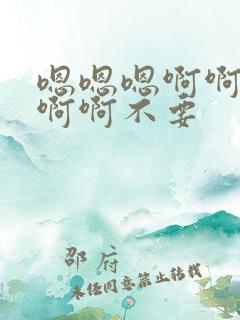 嗯嗯嗯啊啊
啊啊不要
邵府
未经同意禁止转载